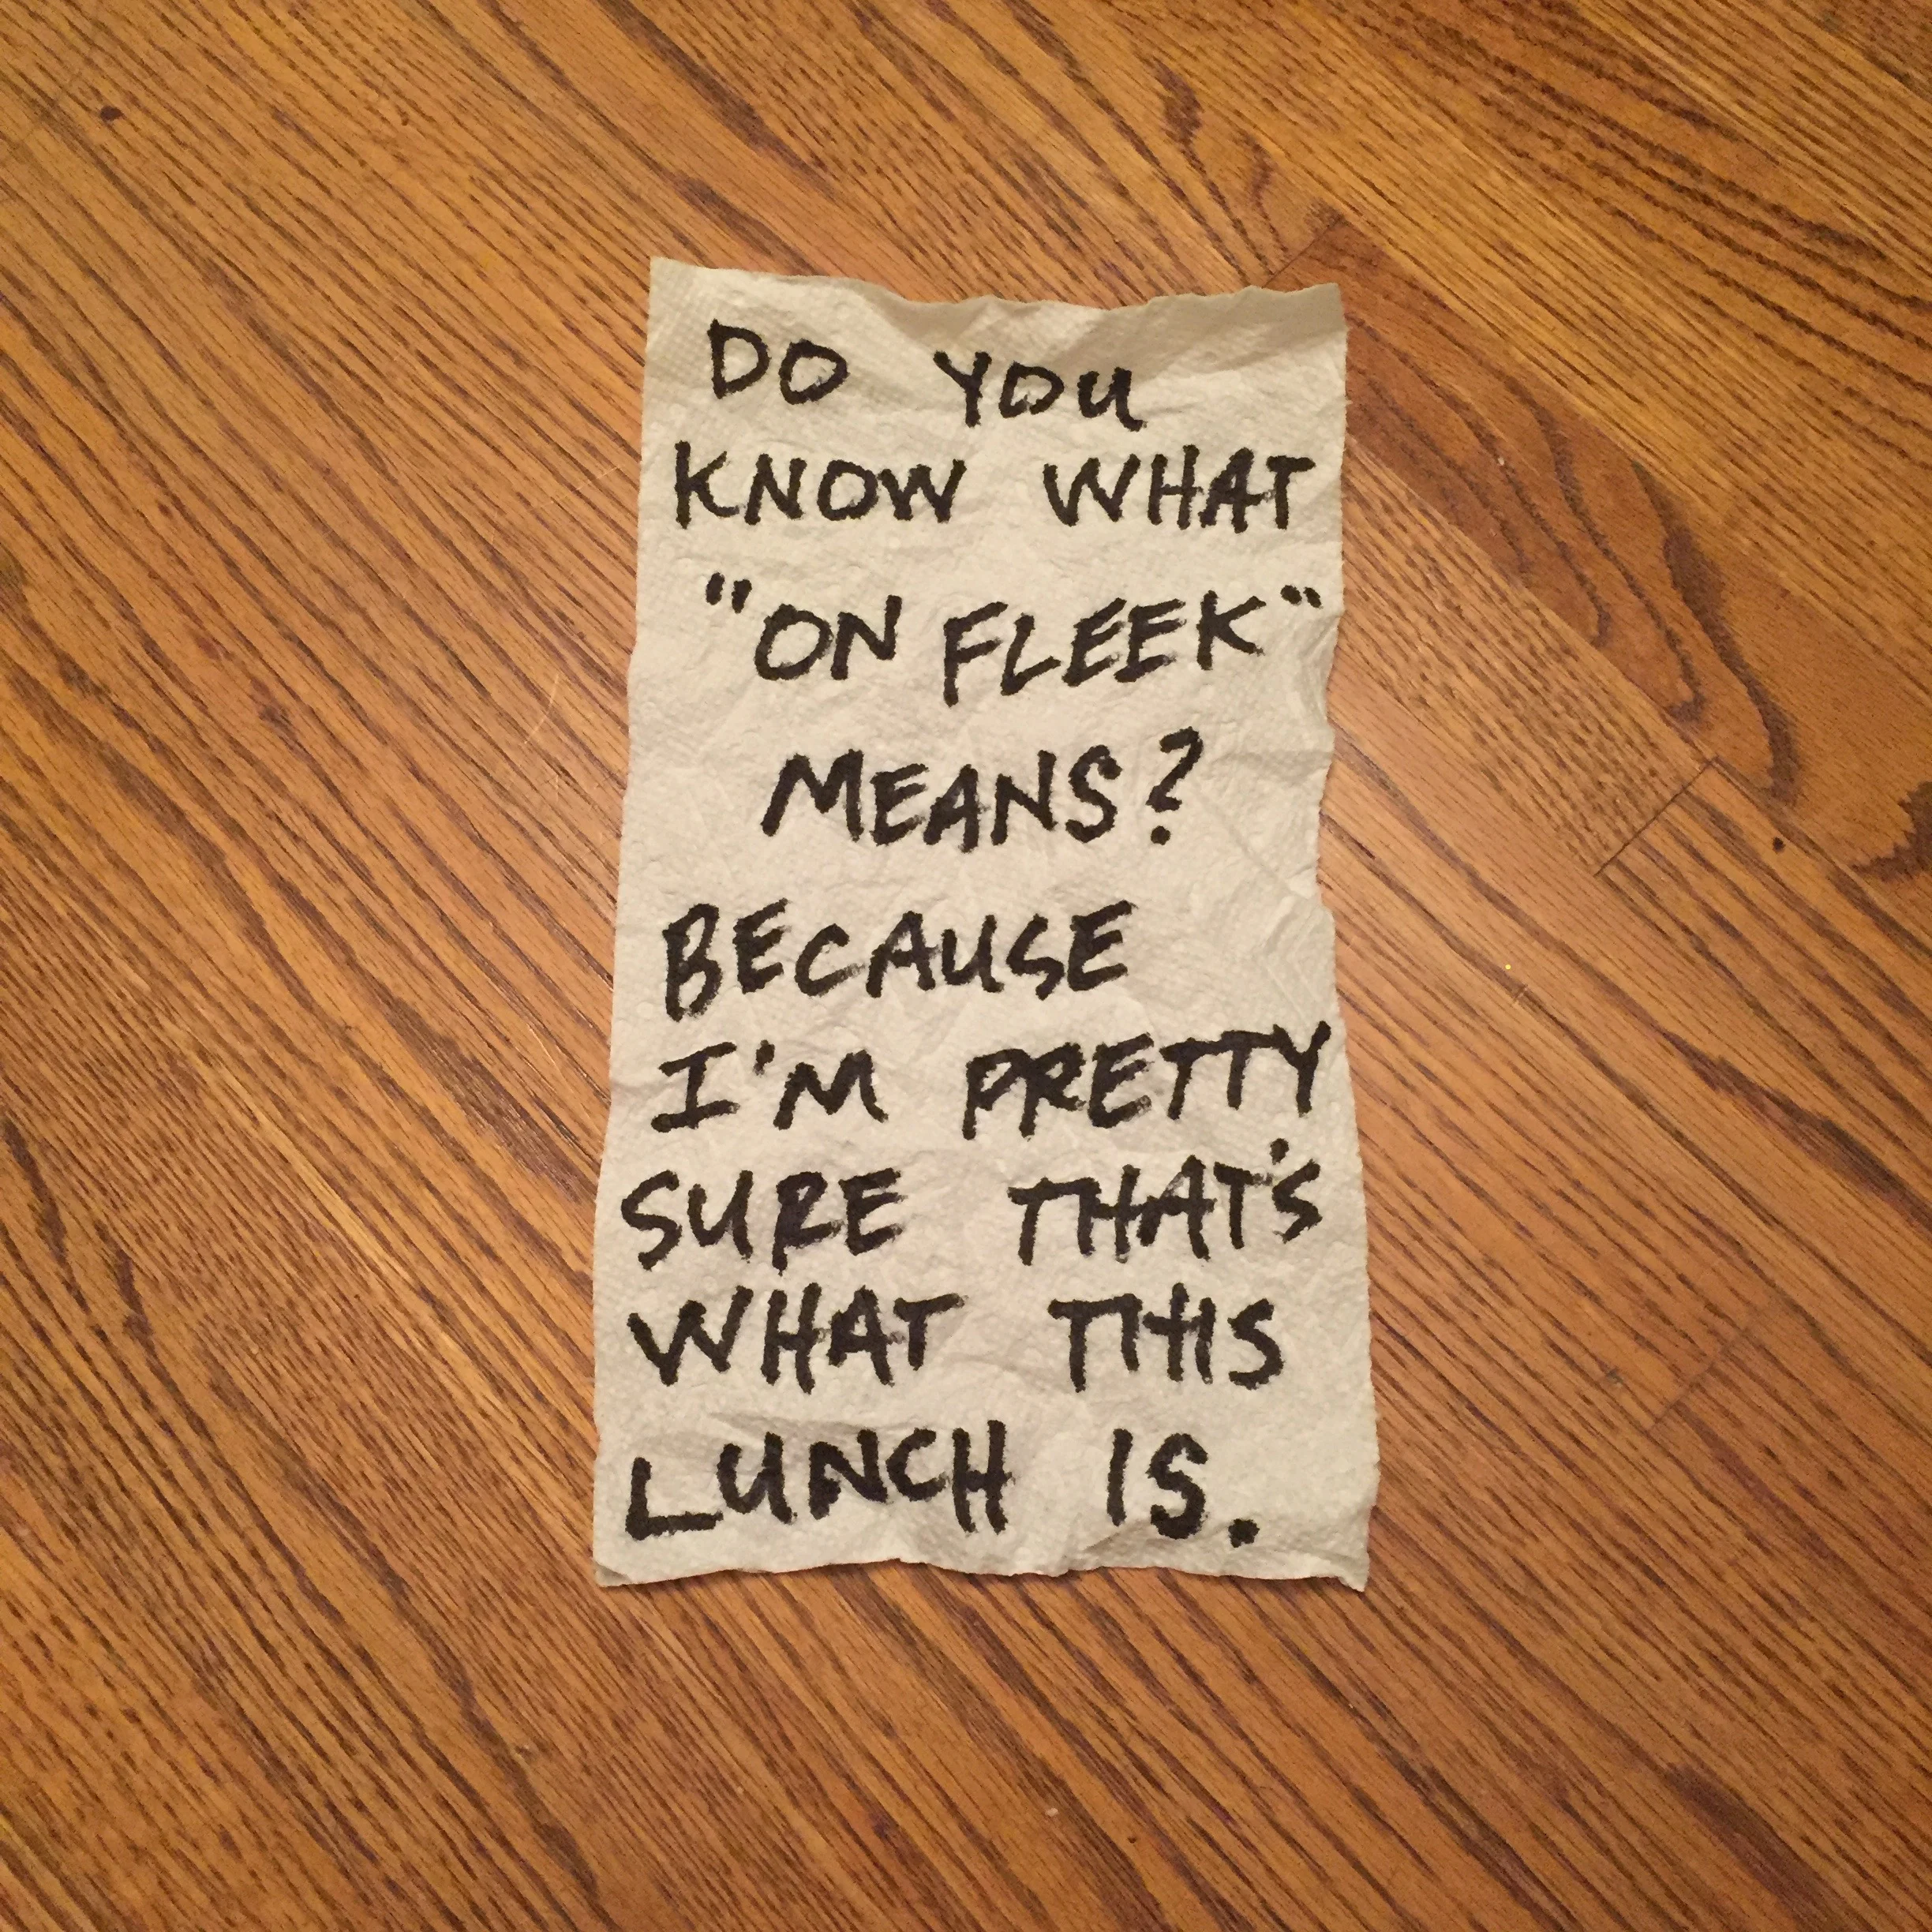 DO YOU
KNOW WHAT
"ON FLEEK"
MEANS?
BECAUSE
I'M PRETTY
SURE THAT'S
WHAT THIS
LUNCH IS.